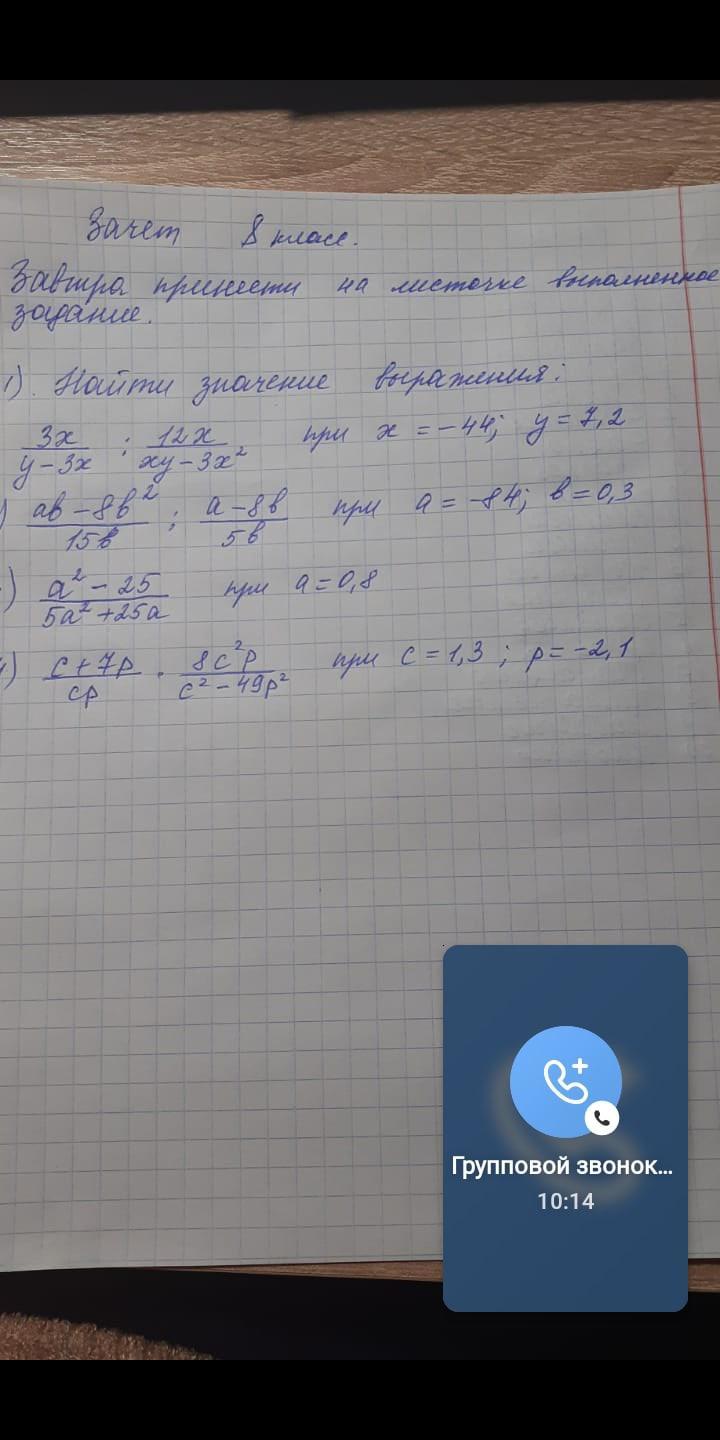 Зачет 8 класс.
Завтра принести на листочке выполненное
задание.
1). Найти значение выражения:
3x/(y-3x) : 12x/(xy-3x²) при x = -44; y = 7,2
) (ab-8b²)/15b : (a-8b)/5b при a = -84; b = 0,3
) (a²-25)/(5a²+25a) при a = 0,8
4) (c+7p)/cp · 8c²p/(c²-49p²) при c = 1,3 ; p = -2,1
Групповой звонок...
10:14